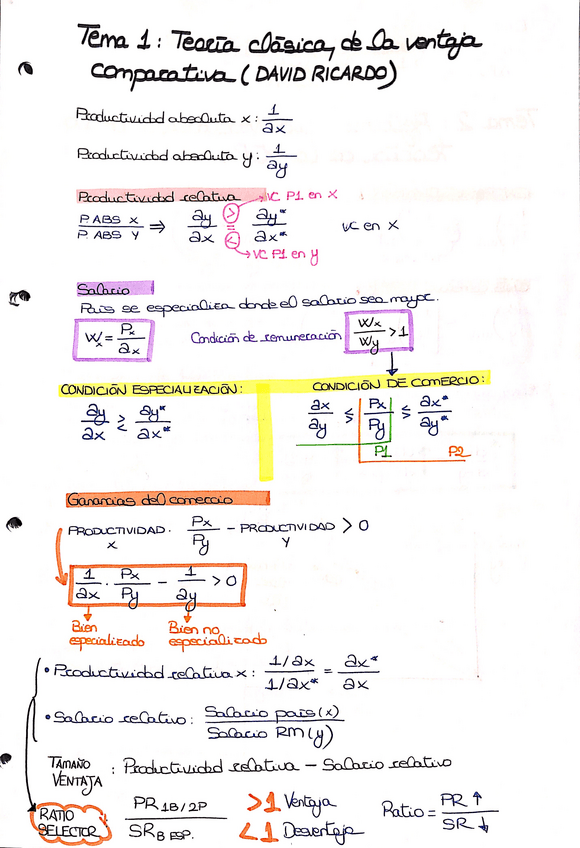 Tema 1: Teoría clásica, de la ventaja
comparativa (DAVID RICARDO)
Productividad absoluta x: 1/ax
Productividad absoluta y: 1/ay
Productividad relativa → VC P1 en X
P ABS X / P ABS Y ⇒ ay/ax > = < ay*/ax* VC en X
→ VC P1 en y
Salario
País se especializa donde el salario sea mayor.
Wx = Px/ax Condición de remuneración Wx/Wy > 1
CONDICIÓN ESPECIALIZACIÓN: CONDICIÓN DE COMERCIO:
ay/ax ≷ ay*/ax* ax/ay ≤ Px/Py ≤ ax*/ay*
P1 P2
Ganancias del comercio
PRODUCTIVIDAD x · Px/Py - PRODUCTIVIDAD y > 0
1/ax · Px/Py - 1/ay > 0
Bien especializado Bien no especializado
• Productividad relativa x: 1/ax / 1/ax* = ax*/ax
• Salario relativo: Salario país (x) / Salario RM (y)
TAMAÑO VENTAJA : Productividad relativa - Salario relativo
RATIO SELECTOR PR 1B/2P / SR B ESP. >1 Ventaja <1 Desventaja Ratio = PR ↑ / SR ↓